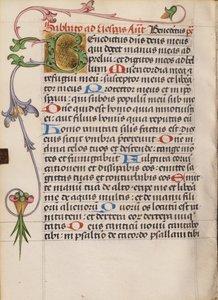 Sabbato ad Vesperas Ant. Benedictus
Benedictus dns deus meus
qui docet manus meas ad
prelium et digitos meos ad bel
lum Misericordia mea et
refugium meum susceptor meus et libera
tor meus Protector meus et in ipso
speravi qui subdis populum meum sub me
Domine quid est homo quia innotuisti ei
aut filius hominis quia reputas eum
Homo vanitati similis factus est di
es eius sicut umbra pretereunt Domine in
clina celos tuos et descende tange mon
tes et fumigabunt Fulgura corusca
tionem et dissipabis eos emitte sa
gittas tuas et conturbabis eos Emit
te manum tuam de alto eripe me et libera
me de aquis multis et de manu fili
orum alienorum Quorum os locutum est va
nitatem et dextera eorum dextera iniqui
tatis Deus canticum novum cantabo
tibi in psalterio decachordo psallam tibi